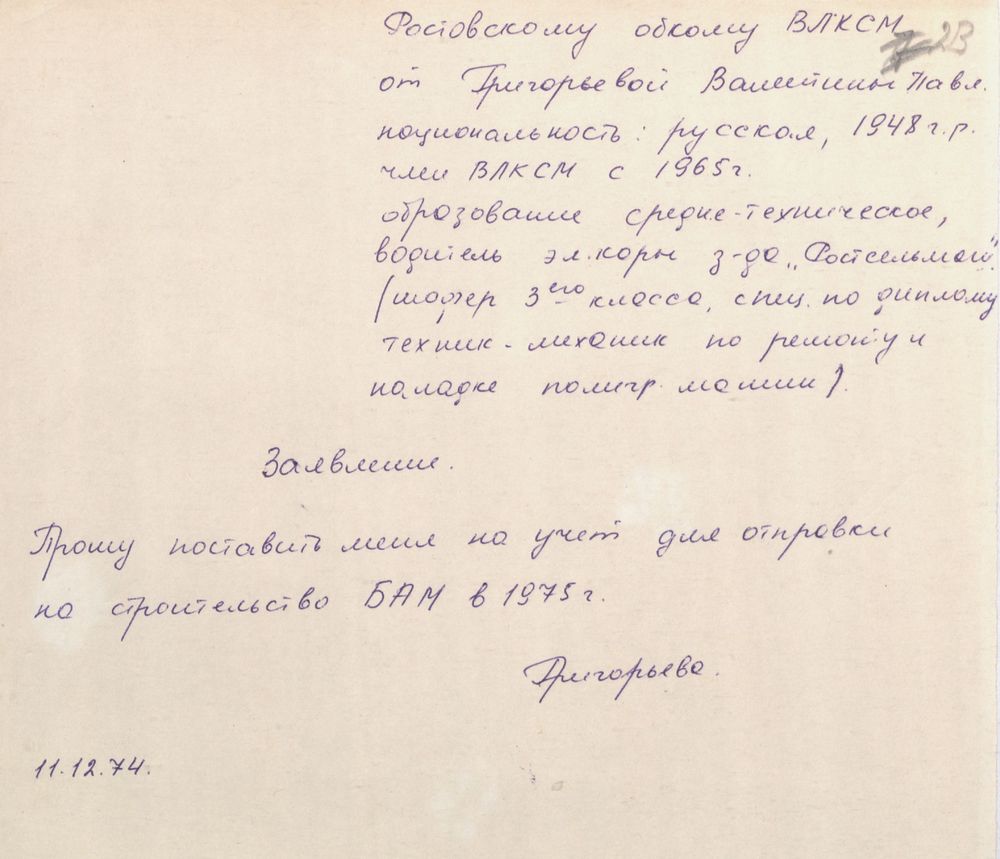 Ростовскому обкому ВЛКСМ
23
от Григорьевой Валентины Павл.
национальность: русская, 1948 г.р.
член ВЛКСМ с 1965г.
образование средне-техническое,
водитель эл.кары з-да „Ростсельмаш"
(шофер 3его класса, спец. по диплому
техник-механик по ремонту и
наладке полигр. машин).
Заявление.
Прошу поставить меня на учет для отправки
на строительство БАМ в 1975г.
Григорьева.
11.12.74.